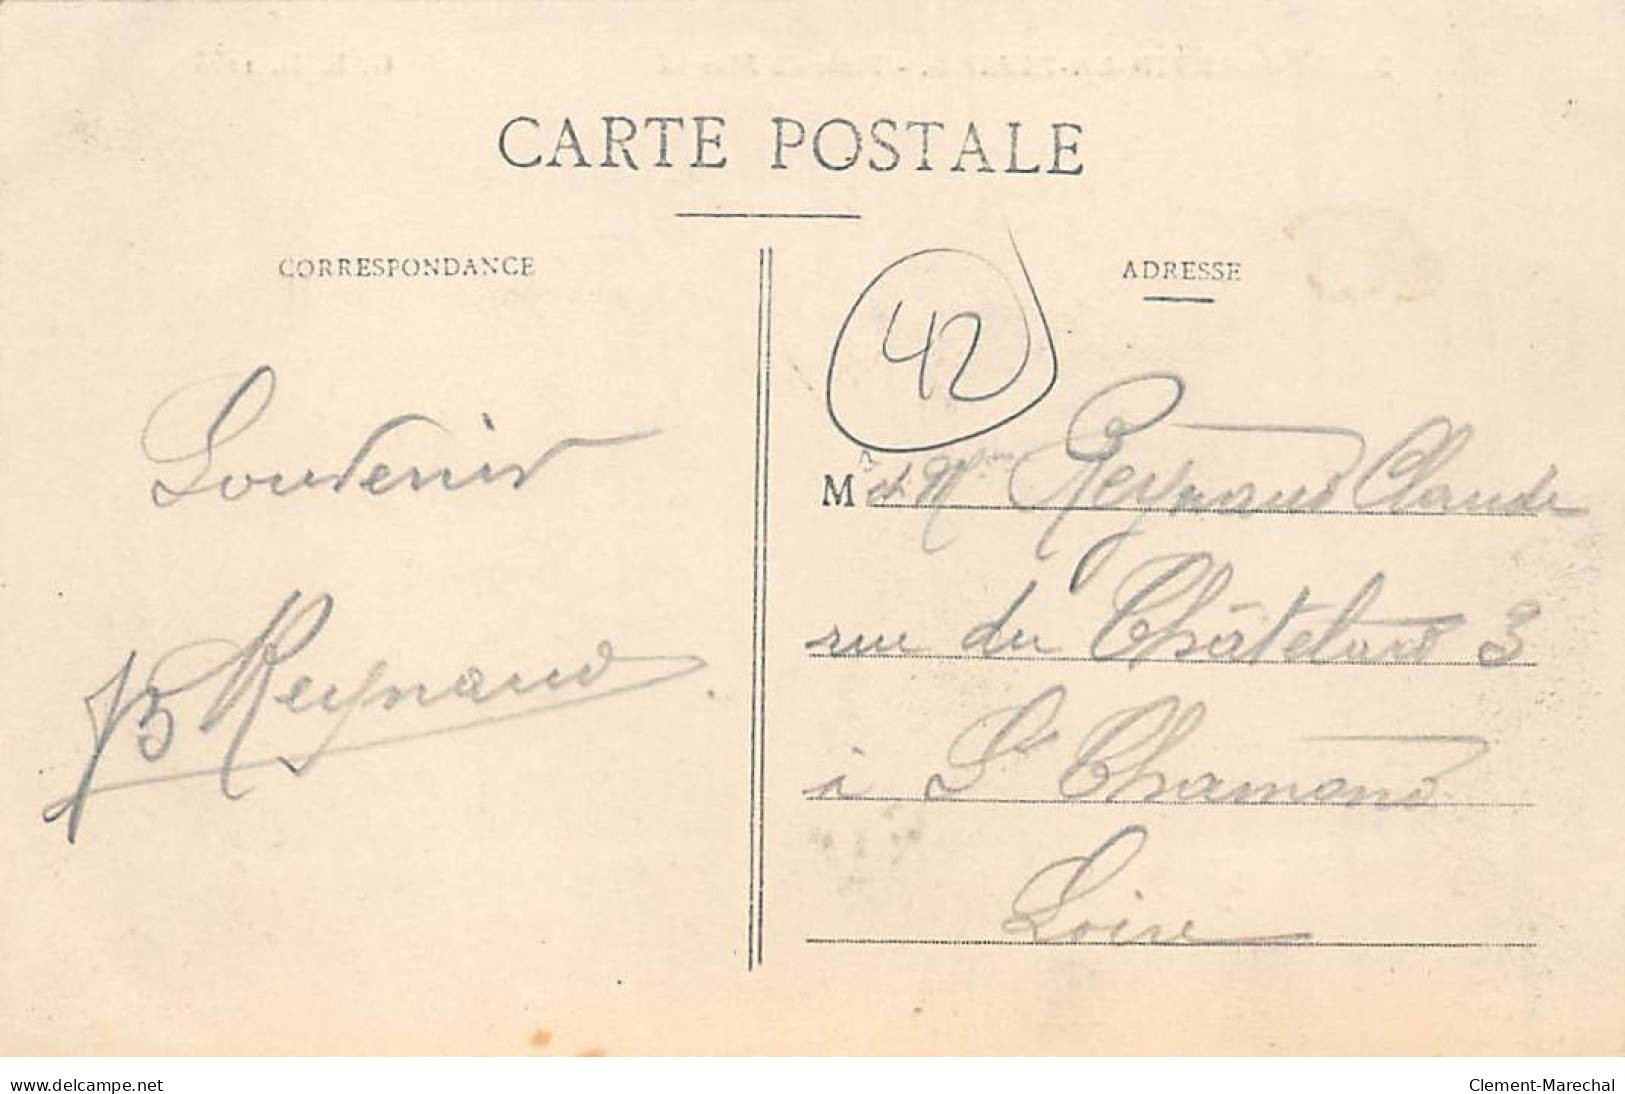 CARTE POSTALE
CORRESPONDANCE
ADRESSE
42
Souvenir
JB Reynaud
M et Mme Reynaud Claude
rue du Châtelard 3
à St Chamond
Loire
www.delcampe.net
Clement-Marechal